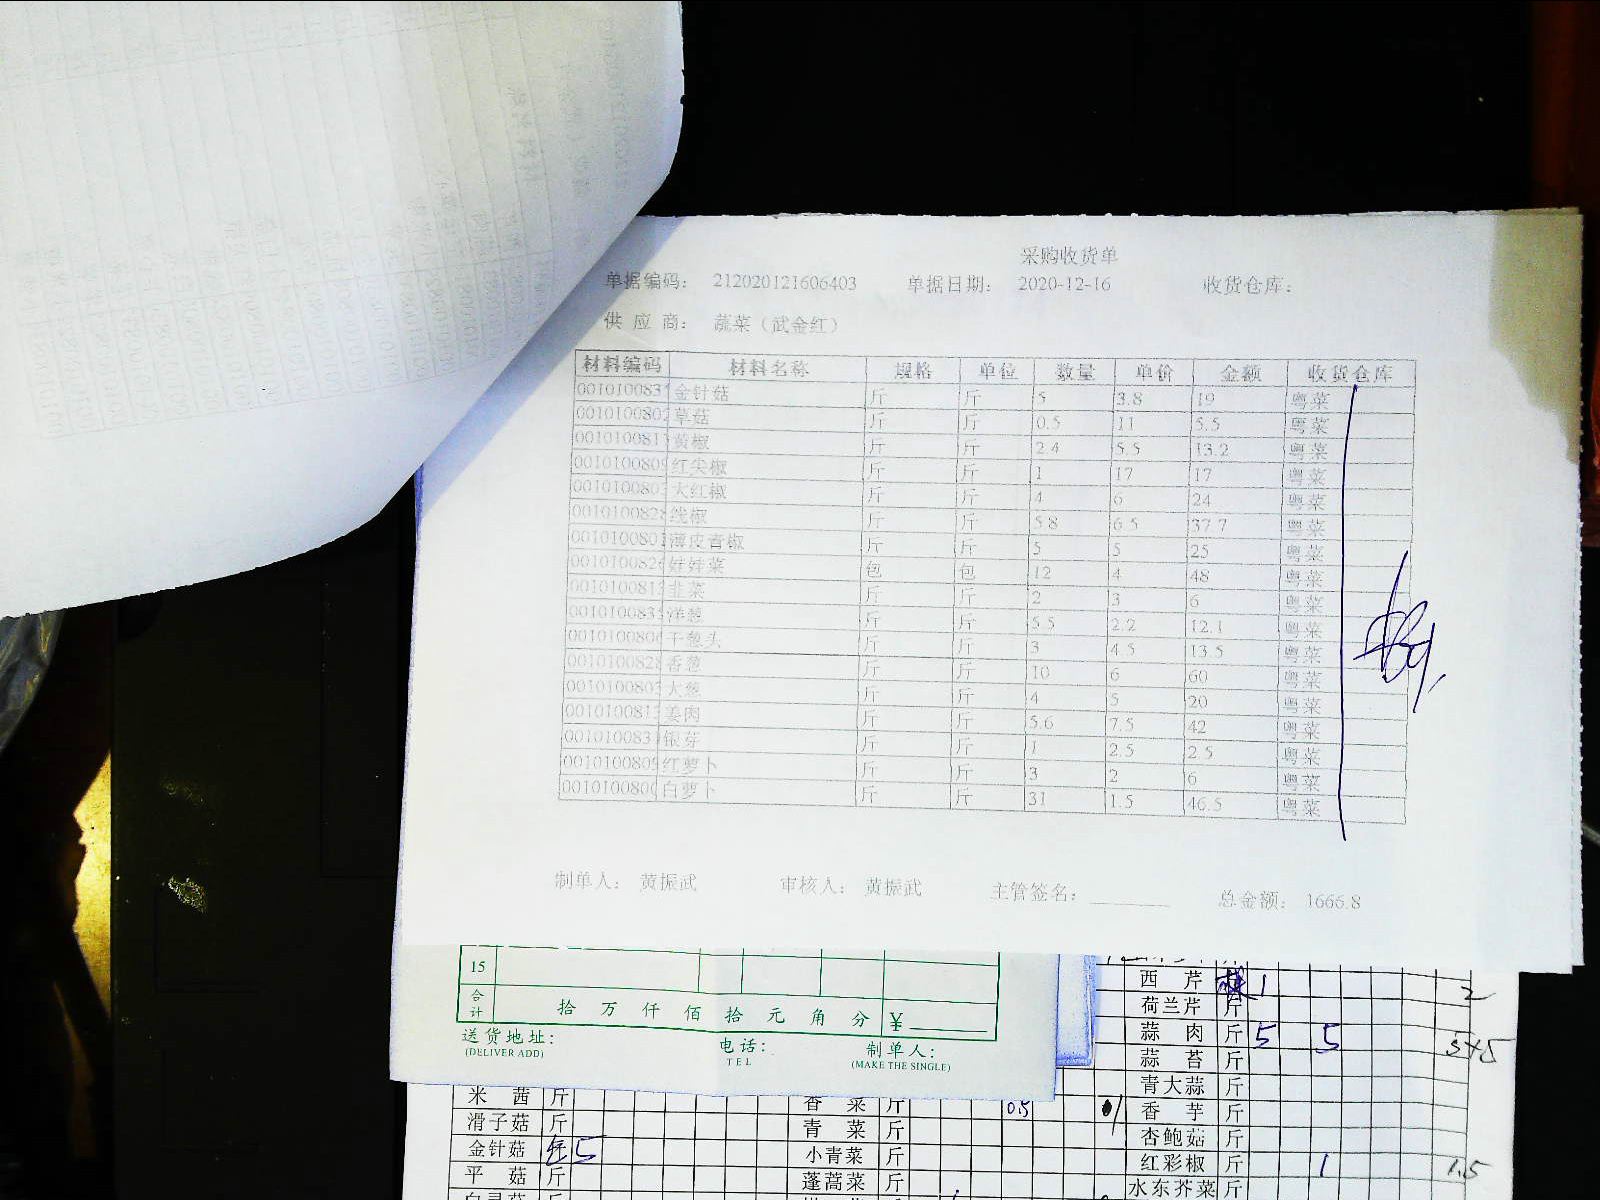 采购收货单
单据编码： 212020121606403 单据日期： 2020-12-16 收货仓库：
供应商： 蔬菜（武金红）
材料编码 材料名称 规格 单位 数量 单价 金额 收货仓库
001010083 金针菇 斤 斤 5 3.8 19 粤菜
001010080 草菇 斤 斤 0.5 11 5.5 粤菜
001010081 黄椒 斤 斤 2.4 5.5 13.2 粤菜
001010080 红尖椒 斤 斤 1 17 17 粤菜
001010080 大红椒 斤 斤 4 6 24 粤菜
001010082 线椒 斤 斤 5.8 6.5 37.7 粤菜
001010080 薄皮青椒 斤 斤 5 5 25 粤菜
001010082 娃娃菜 包 包 12 4 48 粤菜
001010081 韭菜 斤 斤 2 3 6 粤菜
001010083 洋葱 斤 斤 5.5 2.2 12.1 粤菜
001010080 干葱头 斤 斤 3 4.5 13.5 粤菜
001010082 香葱 斤 斤 10 6 60 粤菜
001010080 大葱 斤 斤 4 5 20 粤菜
001010081 姜肉 斤 斤 5.6 7.5 42 粤菜
001010083 银芽 斤 斤 1 2.5 2.5 粤菜
001010080 红萝卜 斤 斤 3 2 6 粤菜
001010080 白萝卜 斤 斤 31 1.5 46.5 粤菜
制单人： 黄振武 审核人： 黄振武 主管签名： 总金额： 1666.8
15
合计 拾 万 仟 佰 拾 元 角 分 ¥
送货地址： 电话： 制单人：
(DELIVER ADD) TEL (MAKE THE SINGLE)
西芹 1 2
荷兰芹 斤
蒜肉 斤 5 5 5+5
蒜苔 斤
青大蒜 斤
米茜 斤 香菜 斤 0.5 香芋 斤
滑子菇 斤 青菜 斤 杏鲍菇 斤
金针菇 5 小青菜 斤 红彩椒 斤 1 1.5
平菇 斤 蓬蒿菜 斤 水东芥菜 斤